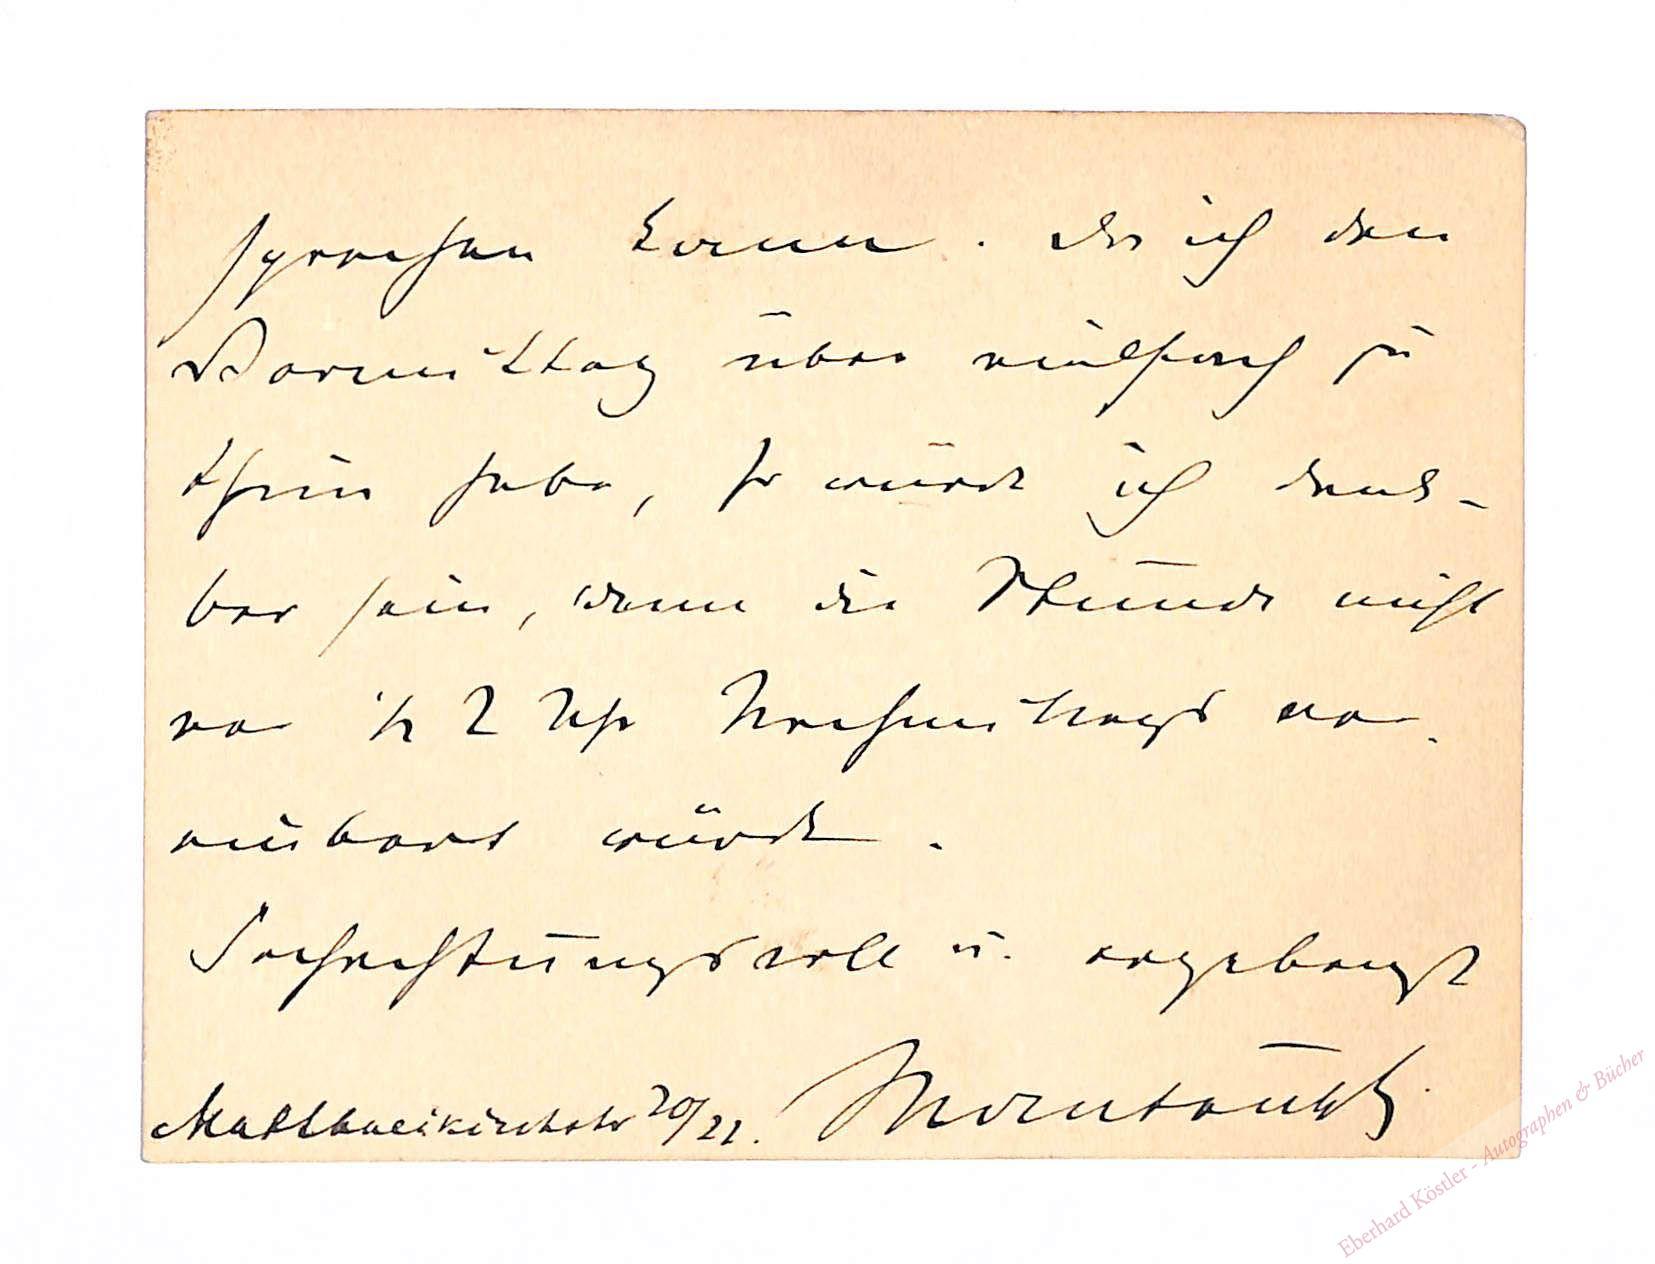 sprechen kann. Da ich den
Vormittag über vielfach zu
thun habe, so würde ich dank-
bar sein, wenn die Stunde nicht
vor ½ 2 Uhr Nachmittags ver-
einbart würde.
Hochachtungsvoll u. ergebenst
Matthaeikirchstr 20/21.
Eberhard Köstler - Autographen & Bücher